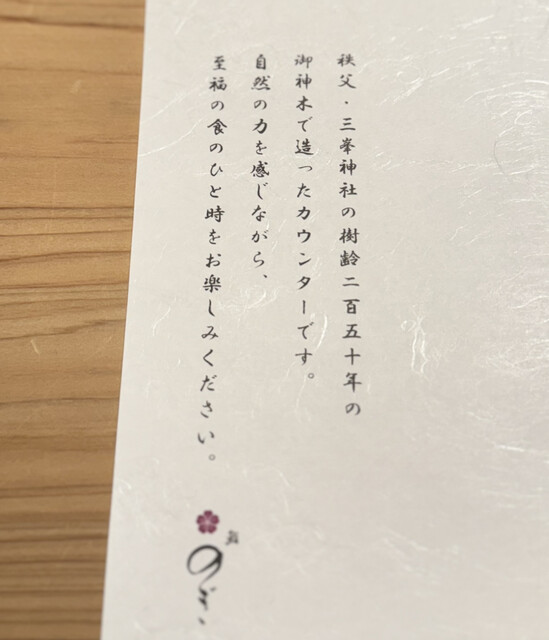 秩父・三峯神社の樹齢二百五十年の
御神木で造ったカウンターです。
自然の力を感じながら、
至福の食のひと時をお楽しみください。